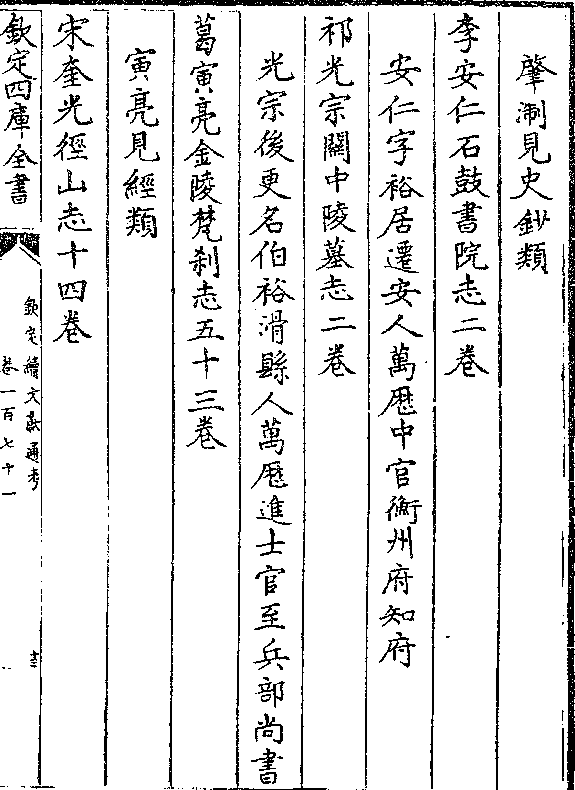 肇淛見史鈔類
李安仁石鼓書院志二卷
安仁字裕居遷安人萬厯中官衡州府知府
祁光宗闗中陵墓志二卷
光宗後更名伯裕滑縣人萬厯進士官至兵部尚書
葛寅亮金陵梵刹志五十三卷
寅亮見經類
宋奎光徑山志十四卷
欽定四庫全書
欽定續文獻通考
卷一百七十一